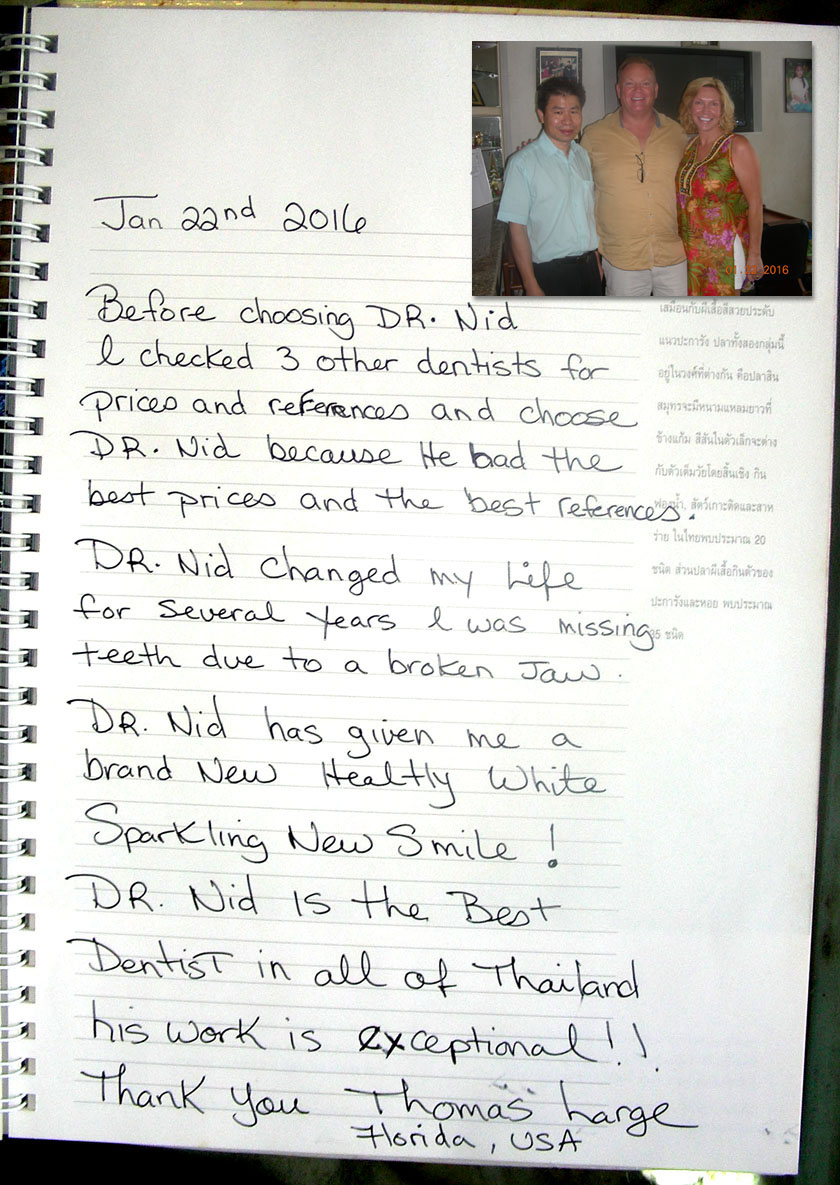 01.22.2016
Jan 22nd 2016
Before choosing DR. Nid
I checked 3 other dentists for
prices and references and choose
DR. Nid because He had the
best prices and the best references.
DR. Nid Changed my Life
for several years I was missing
teeth due to a broken Jaw.
DR. Nid has given me a
brand New Healtly White
Sparkling New Smile !
DR. Nid is the Best
Dentist in all of Thailand
his work is exceptional!!
Thank You Thomas Large
Florida, USA
เสมือนกับผีเสื้อสีสวยประดับ
แนวปะการัง ปลาทั้งสองกลุ่มนี้
อยู่ในวงศ์ที่ต่างกัน คือปลาสิน
สมุทรจะมีหนามแหลมยาวที่
ข้างแก้ม สีสันในตัวเล็กจะต่าง
กับตัวเต็มวัยโดยสิ้นเชิง กิน
ฟองน้ำ, สัตว์เกาะติดและสาห
ร่าย ในไทยพบประมาณ 20
ชนิด ส่วนปลาผีเสื้อกินตัวของ
ปะการังและหอย พบประมาณ
35 ชนิด